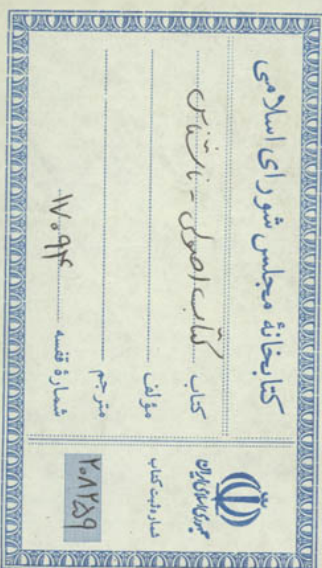 کتابخانهٔ مجلس شورای اسلامی
کتاب کتاب اصولی - ناشناس
مؤلف
مترجم
شمارهٔ قفسه ۱۷۰۹۴
جمهوری اسلامی ایران
شماره ثبت کتاب
۲۰۸۲۵۹